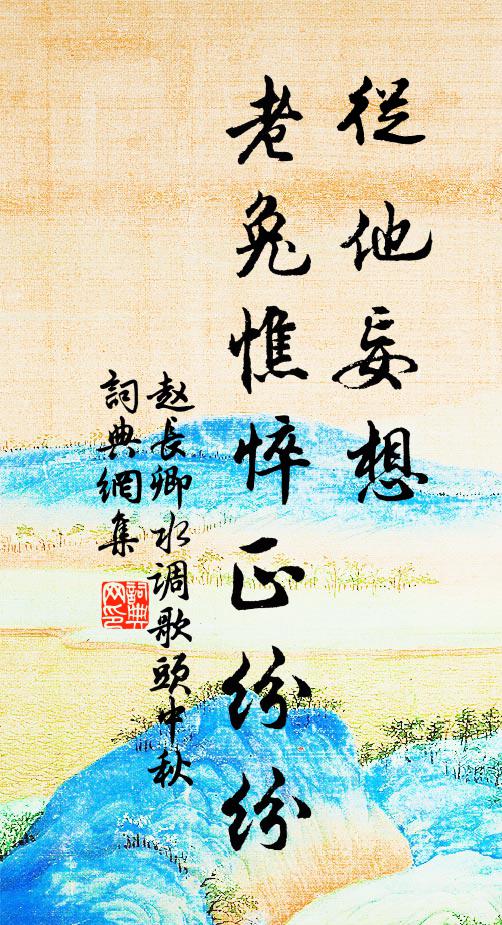 從他妄想
老兔憔悴正紛紛
赵長卿水调歌頭中秋
詞典網集
詞典